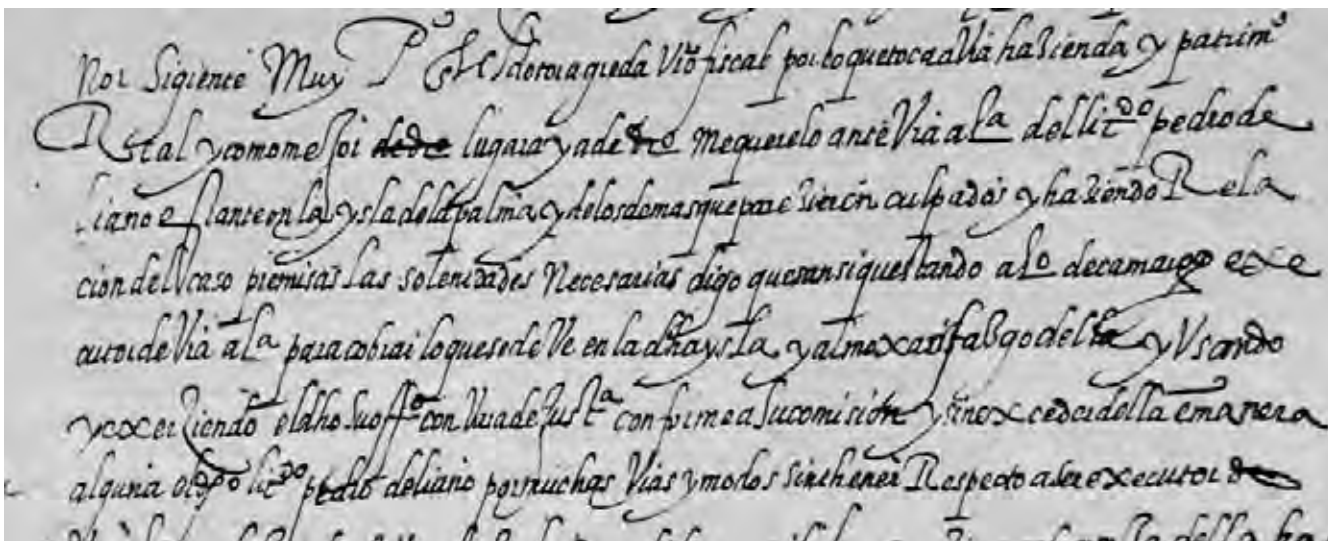 nor siguiente Muy P. S. el ldo toria gueda Vro fiscal por lo que toca a Vra hazienda y patrimo
Real y como mejor de dro lugar aya de dro me querelo ante Vra alª del licdo pedro de
liano estante en la ysla de la palma y de los demas que parecieren culpados y haziendo Rela
cion del caso premisas las solenidades Necesarias digo que ansi questando alo de camargo exe
cutor de Vra alª para cobrar lo que se deve en la dha ysla y almoxarifadgo della y Vsando
y exerziendo el dho su offº con Vara de Justª conforme a su comision y sin exceder della e manera
alguna el dho licdo pedro de liano por muchas Vias y modos sin thener Respecto a ser executor de
della ha